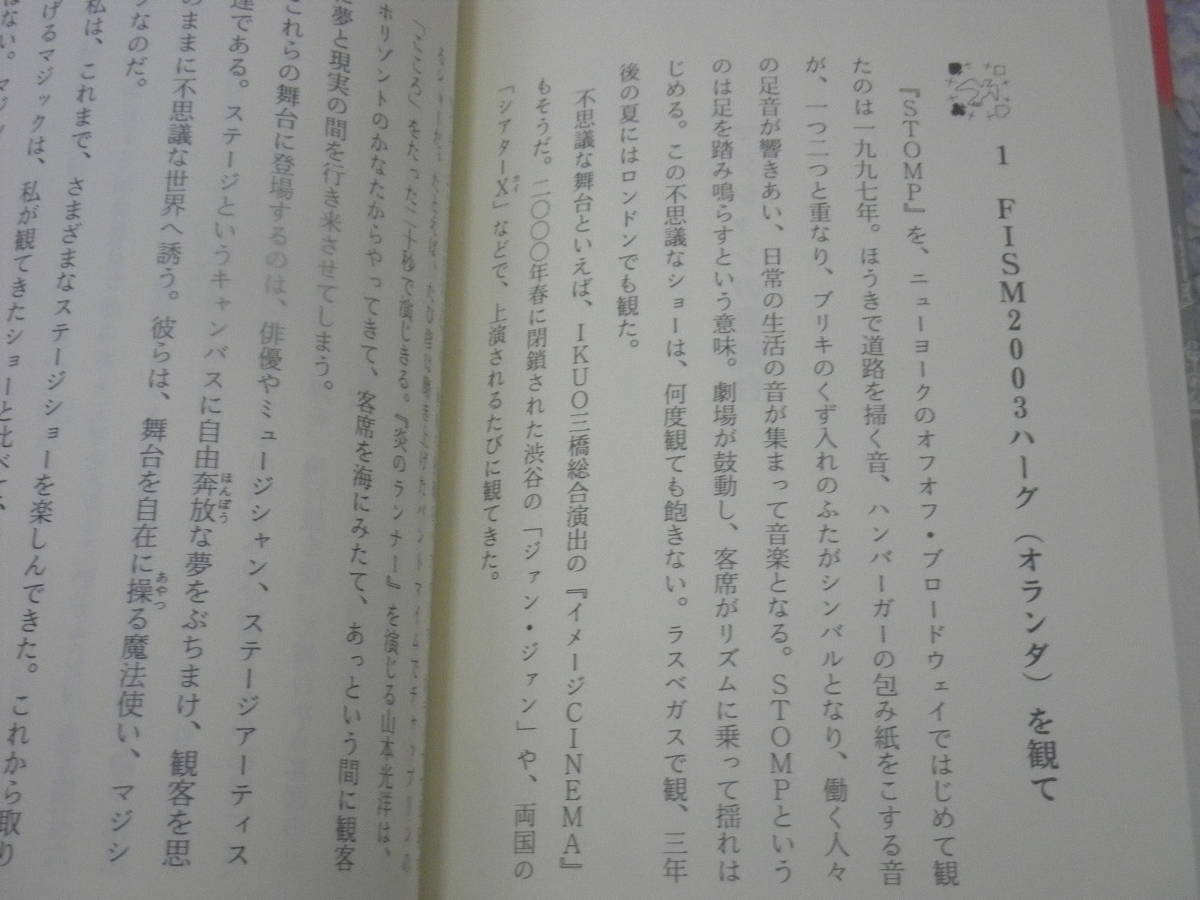 1 FISM2003ハーグ（オランダ）を観て
『STOMP』を、ニューヨークのオフオフ・ブロードウェイではじめて観
たのは一九九七年。ほうきで道路を掃く音、ハンバーガーの包み紙をこする音
が、一つ二つと重なり、ブリキのくず入れのふたがシンバルとなり、働く人々
の足音が響きあい、日常の生活の音が集まって音楽となる。STOMPという
のは足を踏み鳴らすという意味。劇場が鼓動し、客席がリズムに乗って揺れは
じめる。この不思議なショーは、何度観ても飽きない。ラスベガスで観、三年
後の夏にはロンドンでも観た。
不思議な舞台といえば、IKUO三橋総合演出の『イメージCINEMA』
もそうだ。二〇〇〇年春に閉鎖された渋谷の「ジァン・ジァン」や、両国の
「シアターX」などで、上演されるたびに観てきた。
カイ
「こころ」をたった二十秒で演じきる。『炎のランナー』を演じる山本光洋は、
ホリゾントのかなたからやってきて、客席を海にみたて、あっという間に観客
夢と現実の間を行き来させてしまう。
これらの舞台に登場するのは、俳優やミュージシャン、ステージアーティス
達である。ステージというキャンバスに自由奔放な夢をぶちまけ、観客を思
ほんぽう
のままに不思議な世界へ誘う。彼らは、舞台を自在に操る魔法使い、マジシ
あやつ
なのだ。
私は、これまで、さまざまなステージショーを楽しんできた。これから取り
げるマジックは、私が観てきたショーと比べて、
はない。